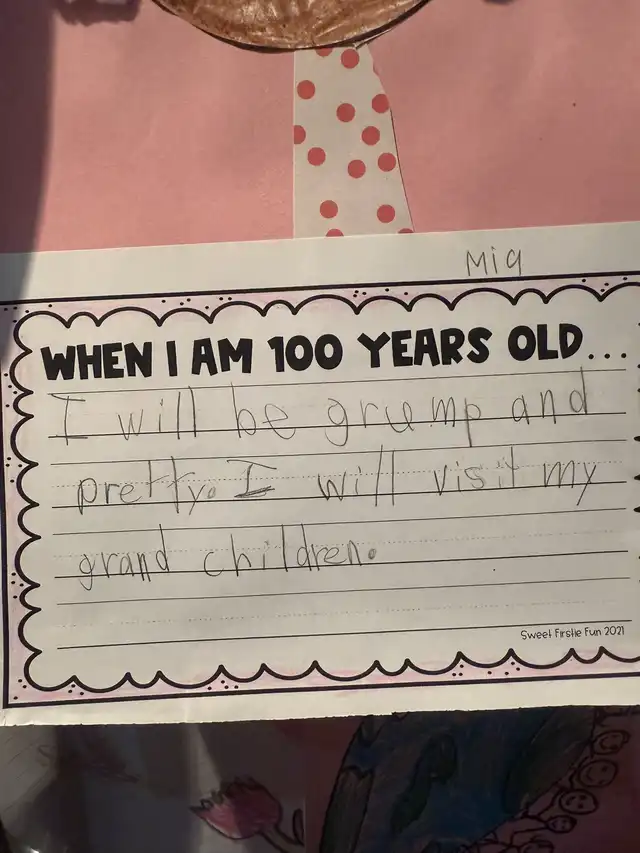 Mia
WHEN I AM 100 YEARS OLD...
I will be grump and
pretty. I will visit my
grand children.
Sweet Firstie Fun 2021